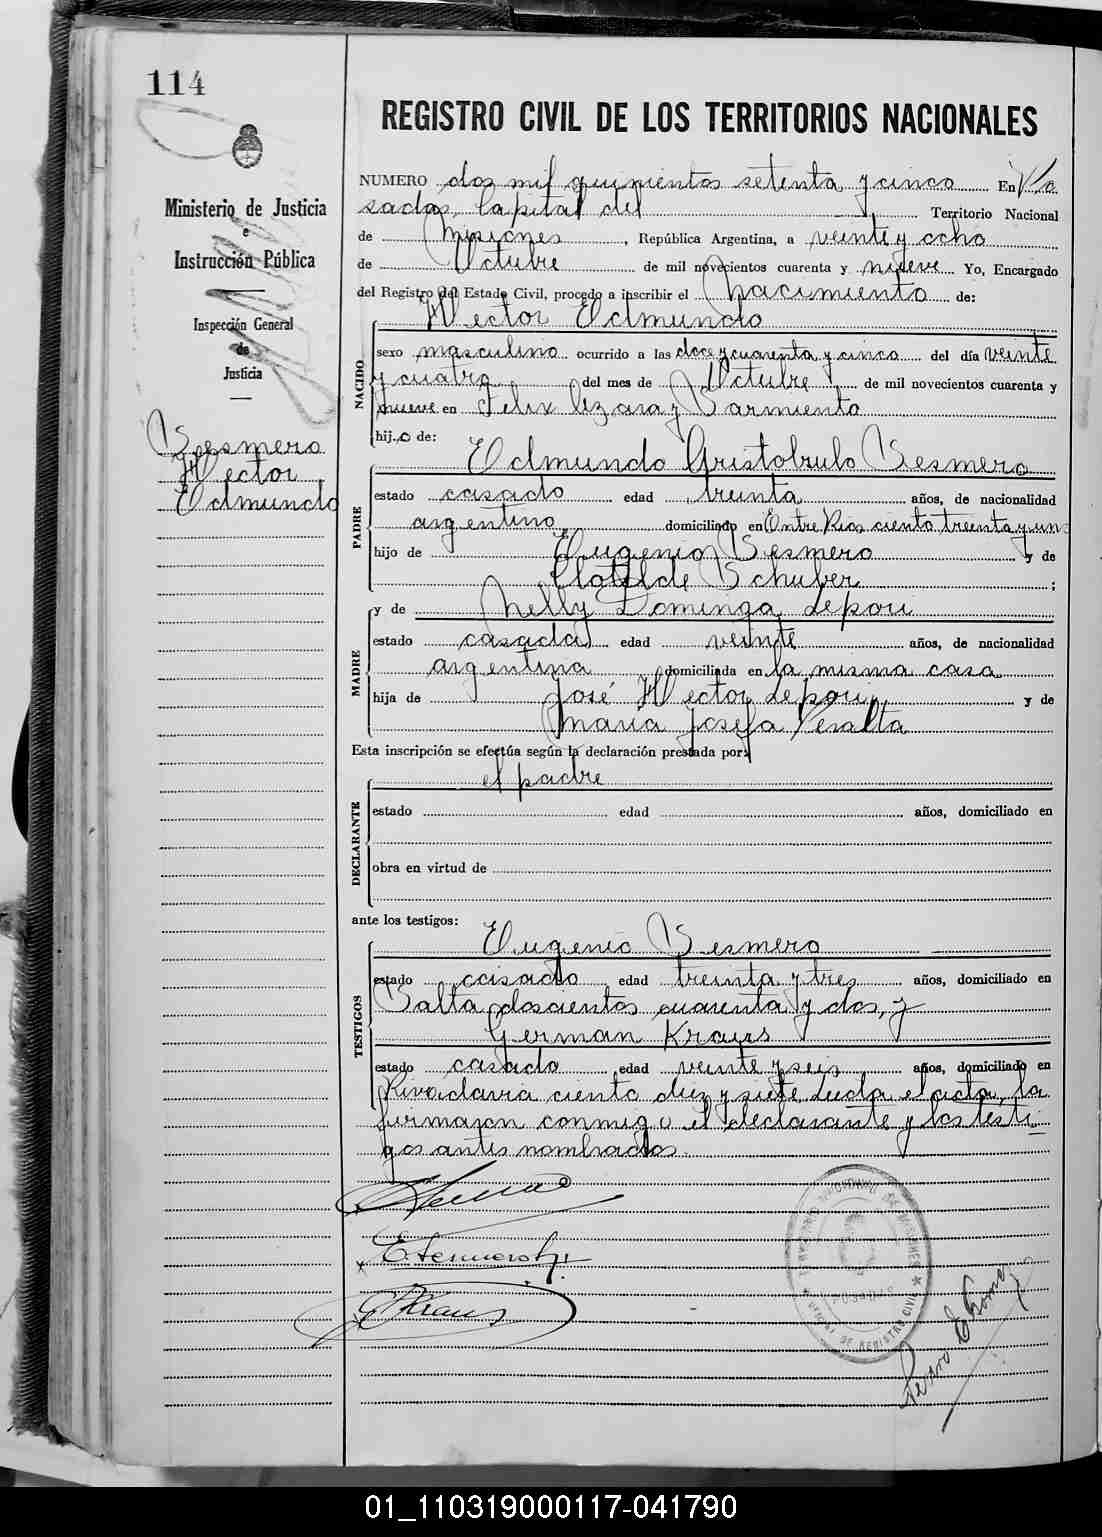 114
REGISTRO CIVIL DE LOS TERRITORIOS NACIONALES
Ministerio de Justicia
e
Instrucción Pública
Inspección General
de
Justicia
Besmero
Hector
Edmundo
NUMERO dos mil quinientos setenta y cinco En Po
sadas, Capital del Territorio Nacional
de Misiones, República Argentina, a veinte y ocho
de Octubre de mil novecientos cuarenta y nueve Yo, Encargado
del Registro del Estado Civil, procedo a inscribir el Nacimiento de:
Hector Edmundo
NACIDO
sexo masculino ocurrido a las doce y cuarenta y cinco del día veinte
y cuatro del mes de Octubre de mil novecientos cuarenta y
nueve en Felix Azara y Sarmiento
hijo de:
Edmundo Aristobulo Besmero
PADRE
estado casado edad treinta años, de nacionalidad
argentino, domiciliado en Entre Rios ciento treinta y uno
hijo de Eugenio Besmero y de
Clotilde Schuber;
MADRE
y de Nelly Dominga Lepori
estado casada edad veinte años, de nacionalidad
argentina domiciliada en la misma casa
hija de José Hector Lepori y de
Maria Josefa Peralta
Esta inscripción se efectúa según la declaración prestada por:
el padre
DECLARANTE
estado edad años, domiciliado en
obra en virtud de
ante los testigos:
TESTIGOS
Eugenio Besmero
estado casado edad treinta y tres años, domiciliado en
Salta doscientos cuarenta y dos, y
German Kraus
estado casado edad veinte y seis años, domiciliado en
Rivadavia ciento diez y siete Leida el acta, la
firmaron conmigo el declarante y los testi
gos antes nombrados.
Kraus
POSADAS
01_110319000117-041790